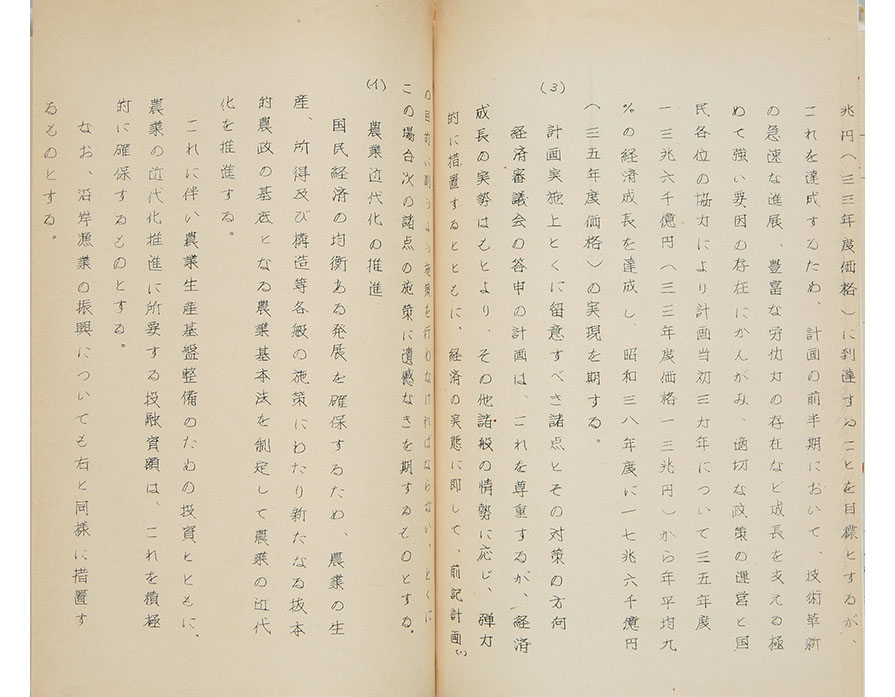 兆円(三三年度価格)に到達することを目標とするが、
これを達成するため、計画の前半期において、技術革新
の急速な進展、豊富な労働力の存在など成長を支える極
めて強い要因の存在にかんがみ、適切な政策の運営と国
民各位の協力により計画当初三カ年について三五年度
一三兆六千億円(三三年度価格一三兆円)から年平均九
%の経済成長を達成し、昭和三八年度に一七兆六千億円
(三五年度価格)の実現を期する。
(3) 計画実施上とくに留意すべき諸点とその対策の方向
経済審議会の答申の計画は、これを尊重するが、経済
成長の実勢はもとより、その他諸般の情勢に応じ、弾力
的に措置するとともに、経済の実態に即して、前記計画
の目的に副うよう施策を行わなければならない。とくに
この場合次の諸点の施策に遺憾なきを期するものとする。
(イ) 農業近代化の推進
国民経済の均衡ある発展を確保するため、農業の生
産、所得及び構造等各般の施策にわたり新たなる抜本
的農政の基底となる農業基本法を制定して農業の近代
化を推進する。
これに伴い農業生産基盤整備のための投資とともに、
農業の近代化推進に所要する投融資額は、これを積極
的に確保するものとする。
なお、沿岸漁業の振興についても右と同様に措置す
るものとする。